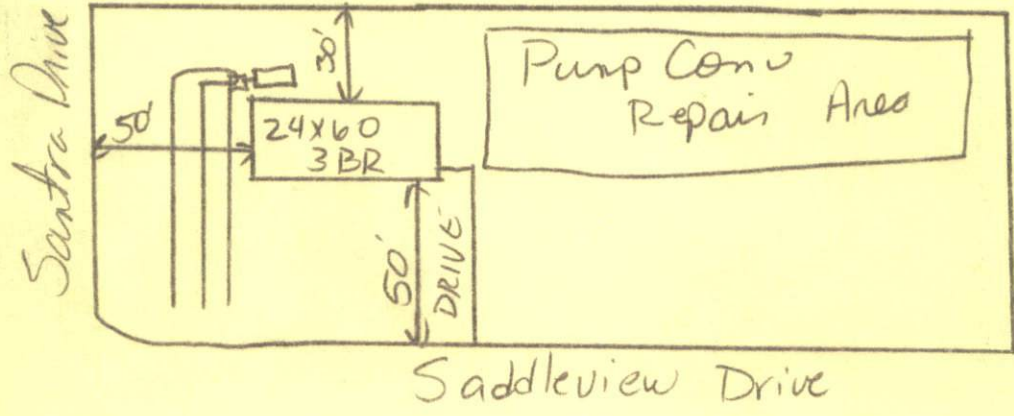 Santra Drive
30'
50'
24x60
3BR
Pump Conv
Repair Area
50'
DRIVE
Saddleview Drive